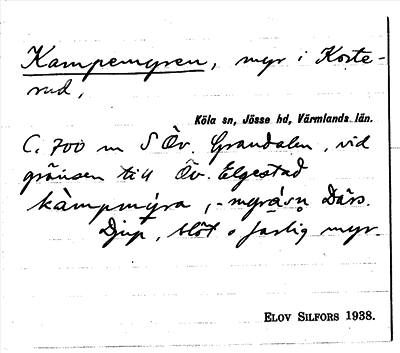 Kampemyren, myr i Korte-
rud,
Köla sn, Jösse hd, Värmlands län.
C. 700 m S Öv. Grandalen, vid
gränsen till Öv. Elgestad
kàmpmýra, -myrásn Därs.
Djup, blöt o farlig myr.
ELOV SILFORS 1938.